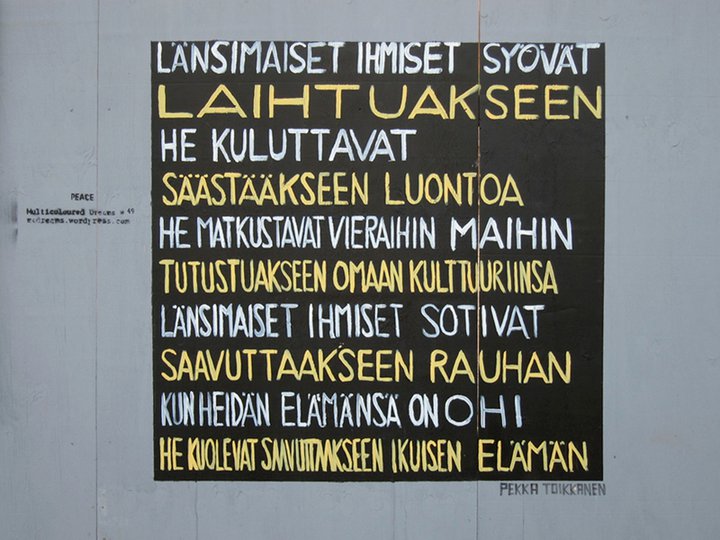 LÄNSIMAISET IHMISET SYÖVÄT
LAIHTUAKSEEN
HE KULUTTAVAT
SÄÄSTÄÄKSEEN LUONTOA
HE MATKUSTAVAT VIERAIHIN MAIHIN
TUTUSTUAKSEEN OMAAN KULTTUURIINSA
LÄNSIMAISET IHMISET SOTIVAT
SAAVUTTAAKSEEN RAUHAN
KUN HEIDÄN ELÄMÄNSÄ ON OHI
HE KUOLEVAT SAAVUTTAAKSEEN IKUISEN ELÄMÄN
PEKKA TOIKKANEN
PEACE
Multicoloured Dreams # 49
mcdreams.wordpress.com